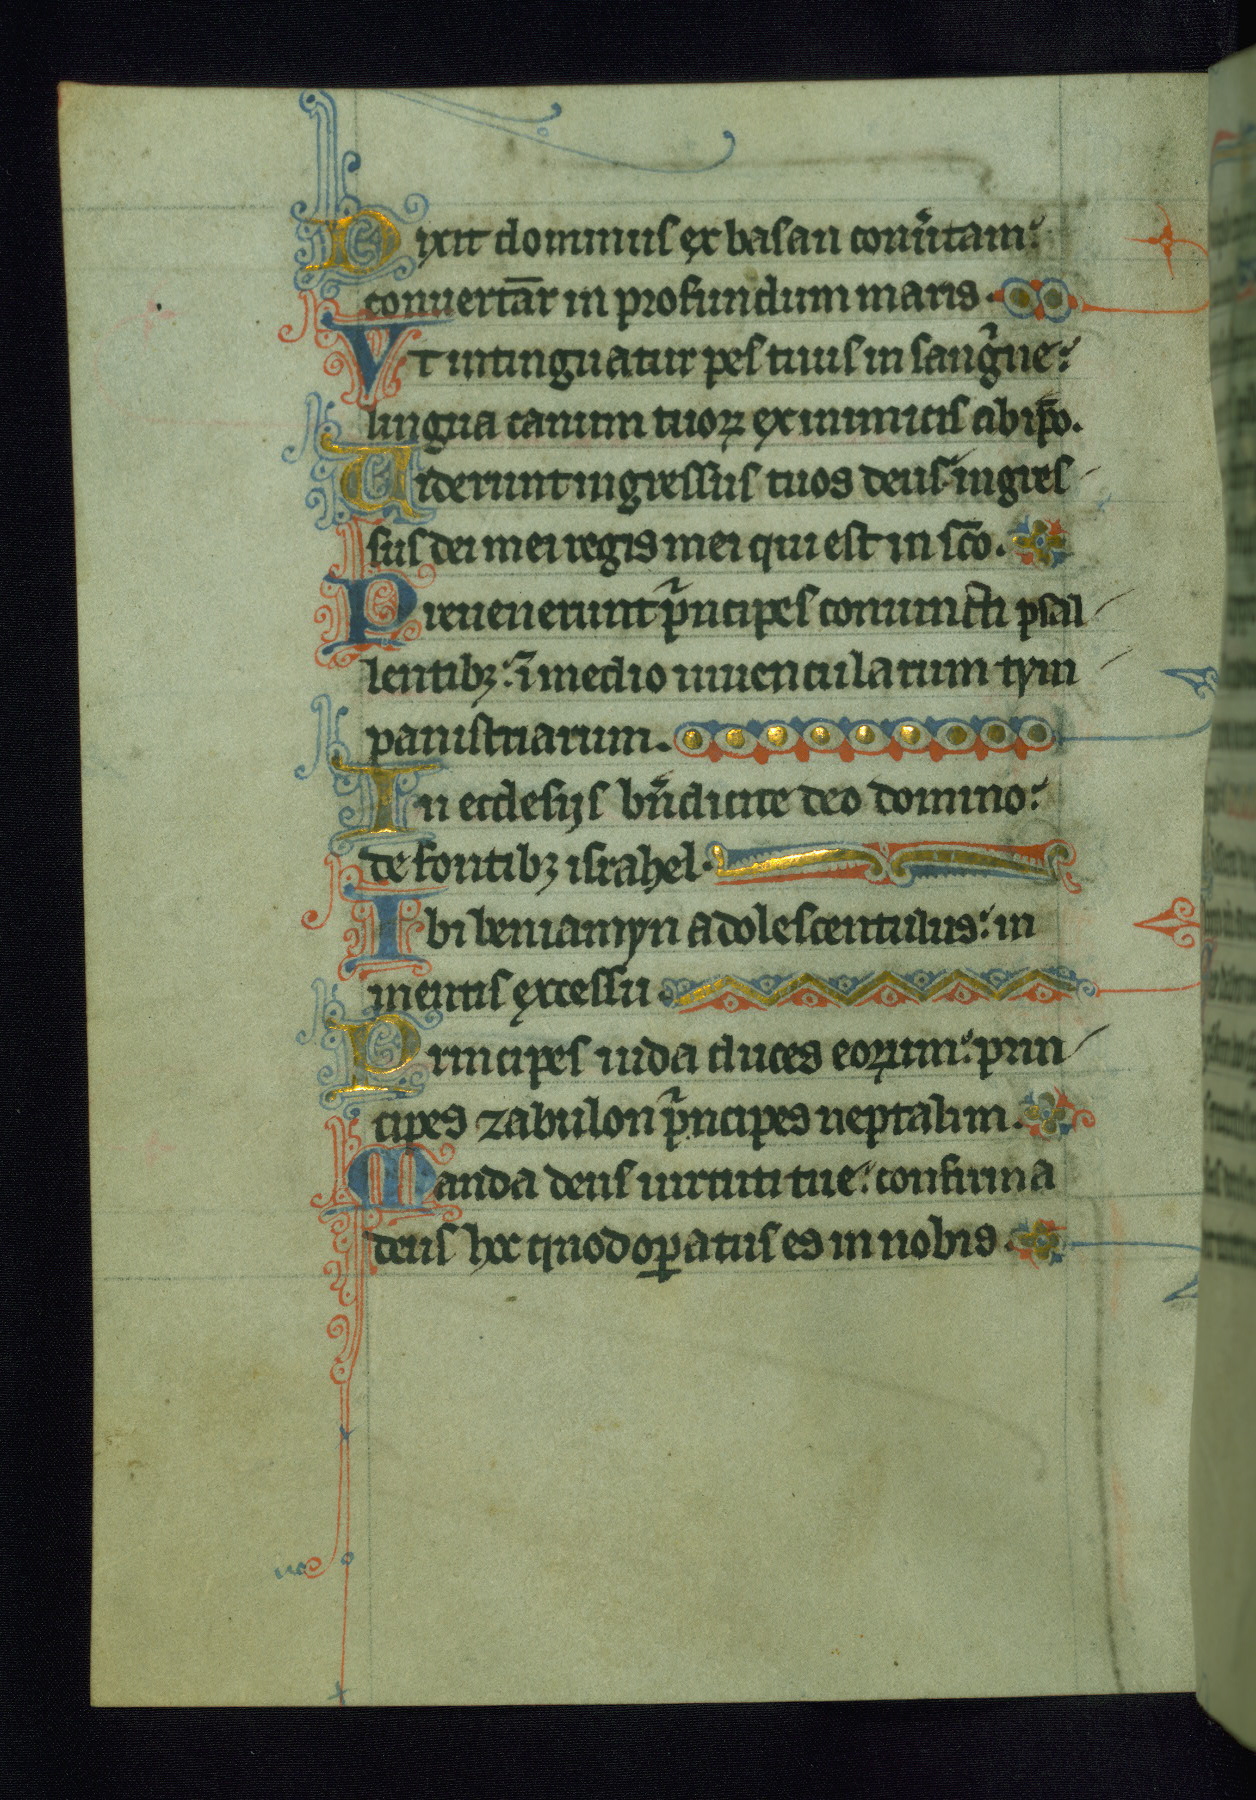 Dixit dominus ex basan conu̾tam:
conuertā̄r in profundum maris.
Vt intinguatur pes tuus in sang̾ne:
lingua canum tuoꝝ ex inimicis ab ip̄o.
Uiderunt ingressus tuos deus ingres
sus dei mei regis mei qui est in sc̄o.
Preuenerunt p̾ncipes coniuncti psal
lentibꝫ: ī medio iuuencularum tym
panistriarum.
In ecclesijs bn̄dicite deo domino:
de fontibꝫ israhel.
Ibi beniamyn adolescentulus: in
mentis excessu.
Principes iuda duces eorum: prin
cipes zabulon p̾ncipes neptalim.
Manda deus uirtuti tue: confirma
deus hoc quod oꝑatus es in nobis.